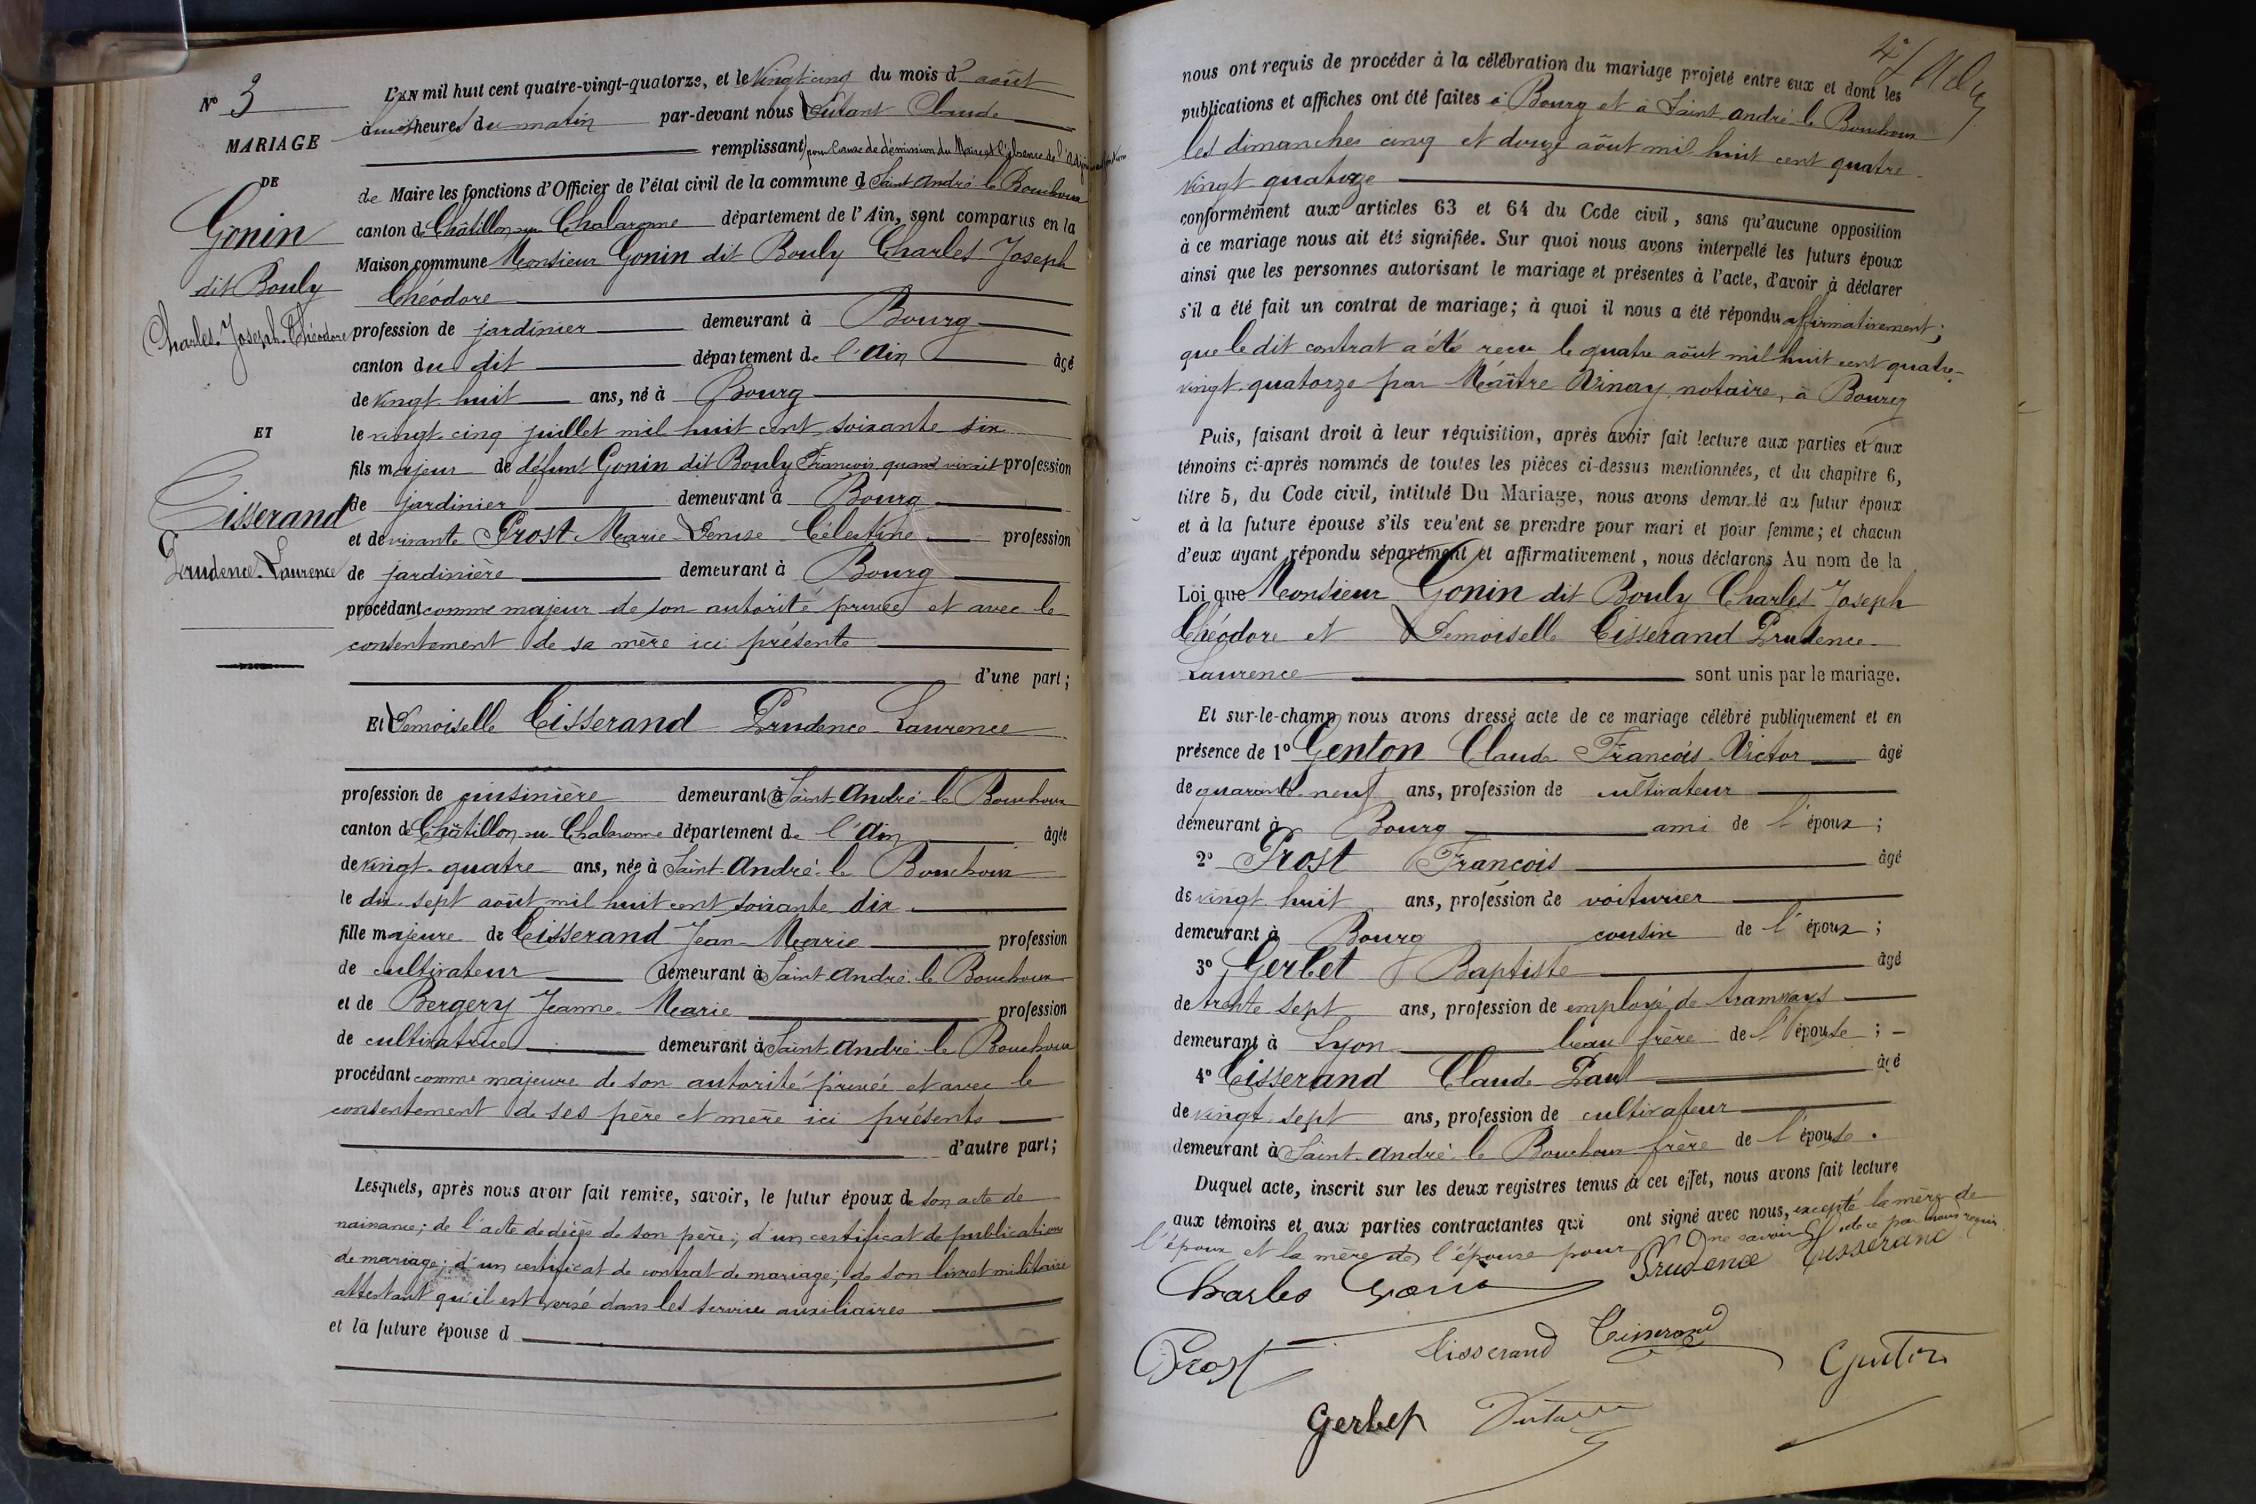 N° 3
MARIAGE
DE
Gonin
dit Bouly
Charles Joseph Théodore
ET
Tisserand
Prudence Laurence
L'AN mil huit cent quatre-vingt-quatorze, et le vingt cinq du mois d' août
à heures du matin par-devant nous Dutant Claude
remplissant, pour cause de démission du Maire et l'absence de l'adjoint
de Maire les fonctions d'Officier de l'état civil de la commune d Saint André le Bouchoux
canton de Châtillon sur Chalaronne département de l'Ain, sont comparus en la
Maison commune Monsieur Gonin dit Bouly Charles Joseph
Théodore
profession de jardinier demeurant à Bourg
canton du dit département de l'Ain âgé
de vingt huit ans, né à Bourg
le vingt cinq juillet mil huit cent soixante six
fils majeur de défunt Gonin dit Bouly François quand vivait profession
de jardinier demeurant à Bourg
et de vivante Prost Marie Denise Célestine profession
de jardinière demeurant à Bourg
procédant comme majeur de son autorité privée et avec le
consentement de sa mère ici présente
d'une part;
Et Demoiselle Tisserand Prudence Laurence
profession de cuisinière demeurant à Saint André le Bouchoux
canton de Châtillon sur Chalaronne département de l'Ain âgée
de vingt quatre ans, née à Saint André le Bouchoux
le dix sept août mil huit cent soixante dix
fille majeure de Tisserand Jean Marie profession
de cultivateur demeurant à Saint André le Bouchoux
et de Bergery Jeanne Marie profession
de cultivatrice demeurant à Saint André le Bouchoux
procédant comme majeure de son autorité privée et avec le
consentement de ses père et mère ici présents
d'autre part;
Lesquels, après nous avoir fait remise, savoir, le futur époux de son acte de
naissance; de l'acte de décès de son père; d'un certificat de publications
de mariage; d'un certificat de contrat de mariage; de son livret militaire
attestant qu'il est versé dans les services auxiliaires
et la future épouse d
4
nous ont requis de procéder à la célébration du mariage projeté entre eux et dont les
publications et affiches ont été faites à Bourg et à Saint André le Bouchoux
les dimanches cinq et douze août mil huit cent quatre
vingt quatorze
conformément aux articles 63 et 64 du Code civil, sans qu'aucune opposition
à ce mariage nous ait été signifiée. Sur quoi nous avons interpellé les futurs époux
ainsi que les personnes autorisant le mariage et présentes à l'acte, d'avoir à déclarer
s'il a été fait un contrat de mariage; à quoi il nous a été répondu affirmativement;
que le dit contrat a été recu le quatre août mil huit cent quatre-
vingt-quatorze par Maître notaire, à Bourg
Puis, faisant droit à leur réquisition, après avoir fait lecture aux parties et aux
témoins ci-après nommés de toutes les pièces ci-dessus mentionnées, et du chapitre 6,
titre 5, du Code civil, intitulé Du Mariage, nous avons demandé au futur époux
et à la future épouse s'ils veulent se prendre pour mari et pour femme; et chacun
d'eux ayant répondu séparément et affirmativement, nous déclarons Au nom de la
Loi que Monsieur Gonin dit Bouly Charles Joseph
Théodore et Demoiselle Tisserand Prudence
Laurence sont unis par le mariage.
Et sur-le-champ nous avons dressé acte de ce mariage célébré publiquement et en
présence de 1° Genton Claude François Victor âgé
de quarante neuf ans, profession de cultivateur
demeurant à Bourg ami de l'époux;
2° Prost François âgé
de vingt huit ans, profession de voiturier
demeurant à Bourg cousin de l'époux;
3° Gerbet Baptiste âgé
de trente sept ans, profession de employé de tramways
demeurant à Lyon beau frère de l'épouse;
4° Tisserand Claude Paul âgé
de vingt sept ans, profession de cultivateur
demeurant à Saint André le Bouchoux frère de l'épouse.
Duquel acte, inscrit sur les deux registres tenus à cet effet, nous avons fait lecture
aux témoins et aux parties contractantes qui ont signé avec nous, excepté la mère de
l'époux et la mère de l'épouse pour ne savoir de ce par nous requis
Charles Gonin Prudence Tisserand
Prost Tisserand Tisserand Genton
Gerbet Dutant